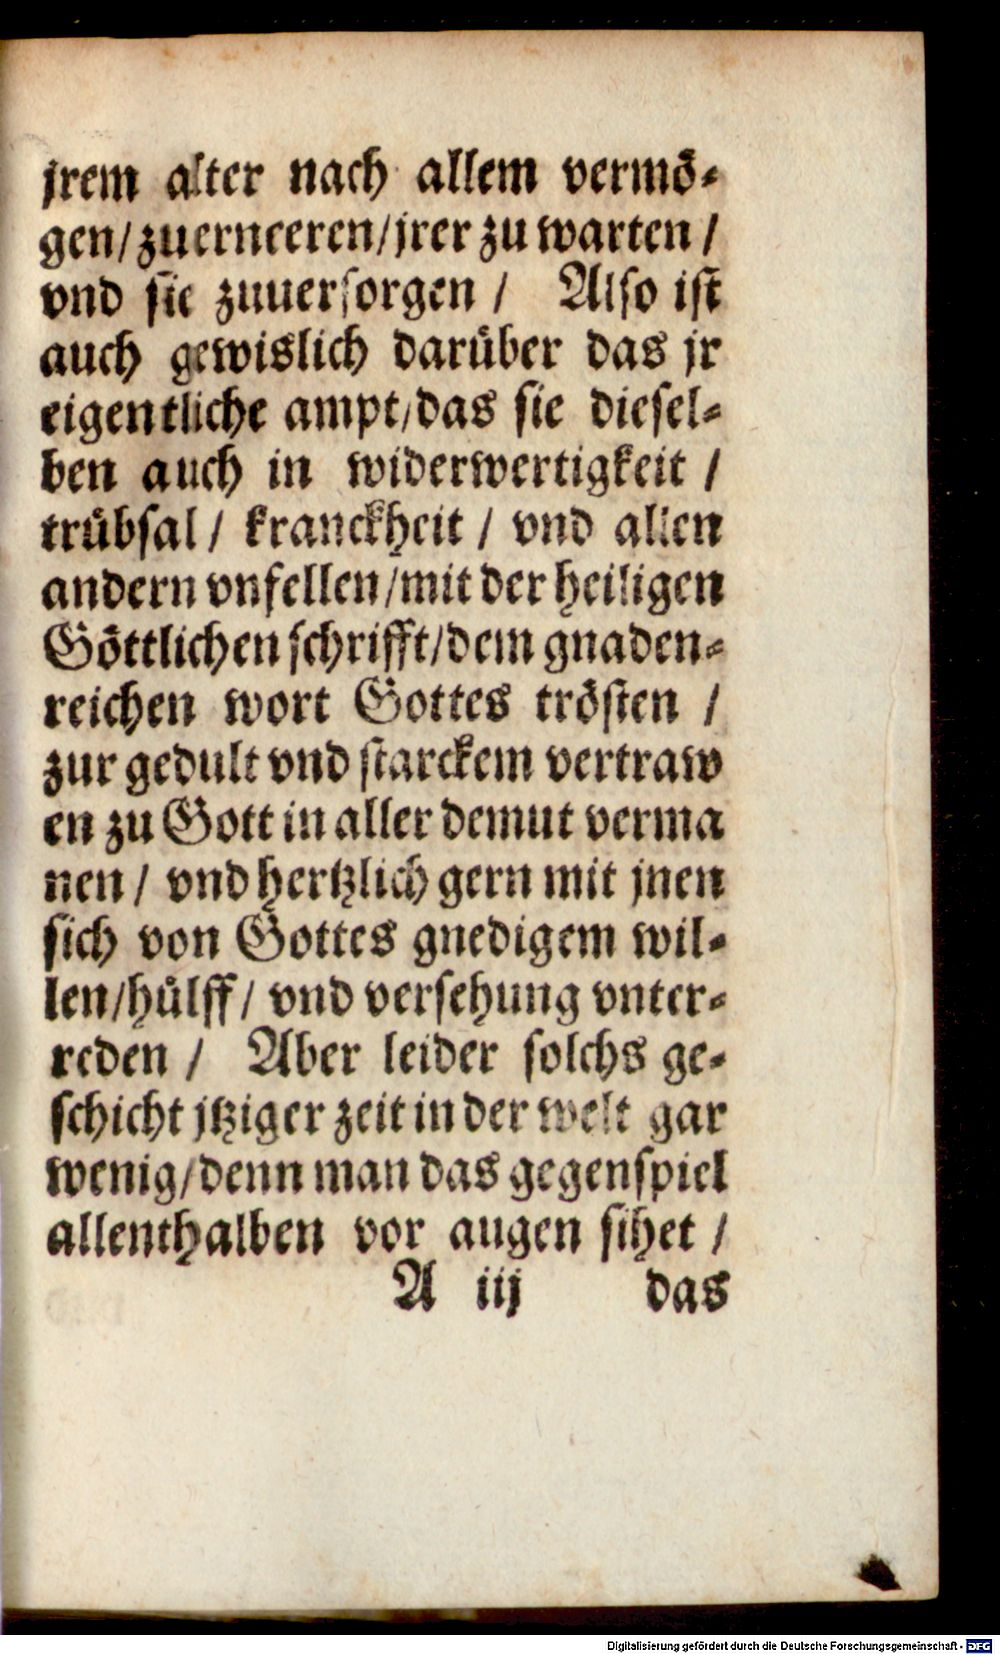 jrem alter nach allem vermö-
gen/zuerneeren/jrer zu warten /
vnd sie zuuersorgen / Also ist
auch gewislich darüber das jr
eigentliche ampt/das sie diesel-
ben auch in widerwertigkeit /
trübsal / kranckheit / vnd allen
andern vnfellen/mit der heiligen
Göttlichen schrifft/dem gnaden-
reichen wort Gottes trösten /
zur gedult vnd starckem vertraw
en zu Gott in aller demut verma
nen / vnd hertzlich gern mit jnen
sich von Gottes gnedigem wil-
len/hülff / vnd versehung vnter-
reden / Aber leider solchs ge-
schicht jtziger zeit in der welt gar
wenig/denn man das gegenspiel
allenthalben vor augen sihet /
A iij das
Digitalisierung gefördert durch die Deutsche Forschungsgemeinschaft - DFG